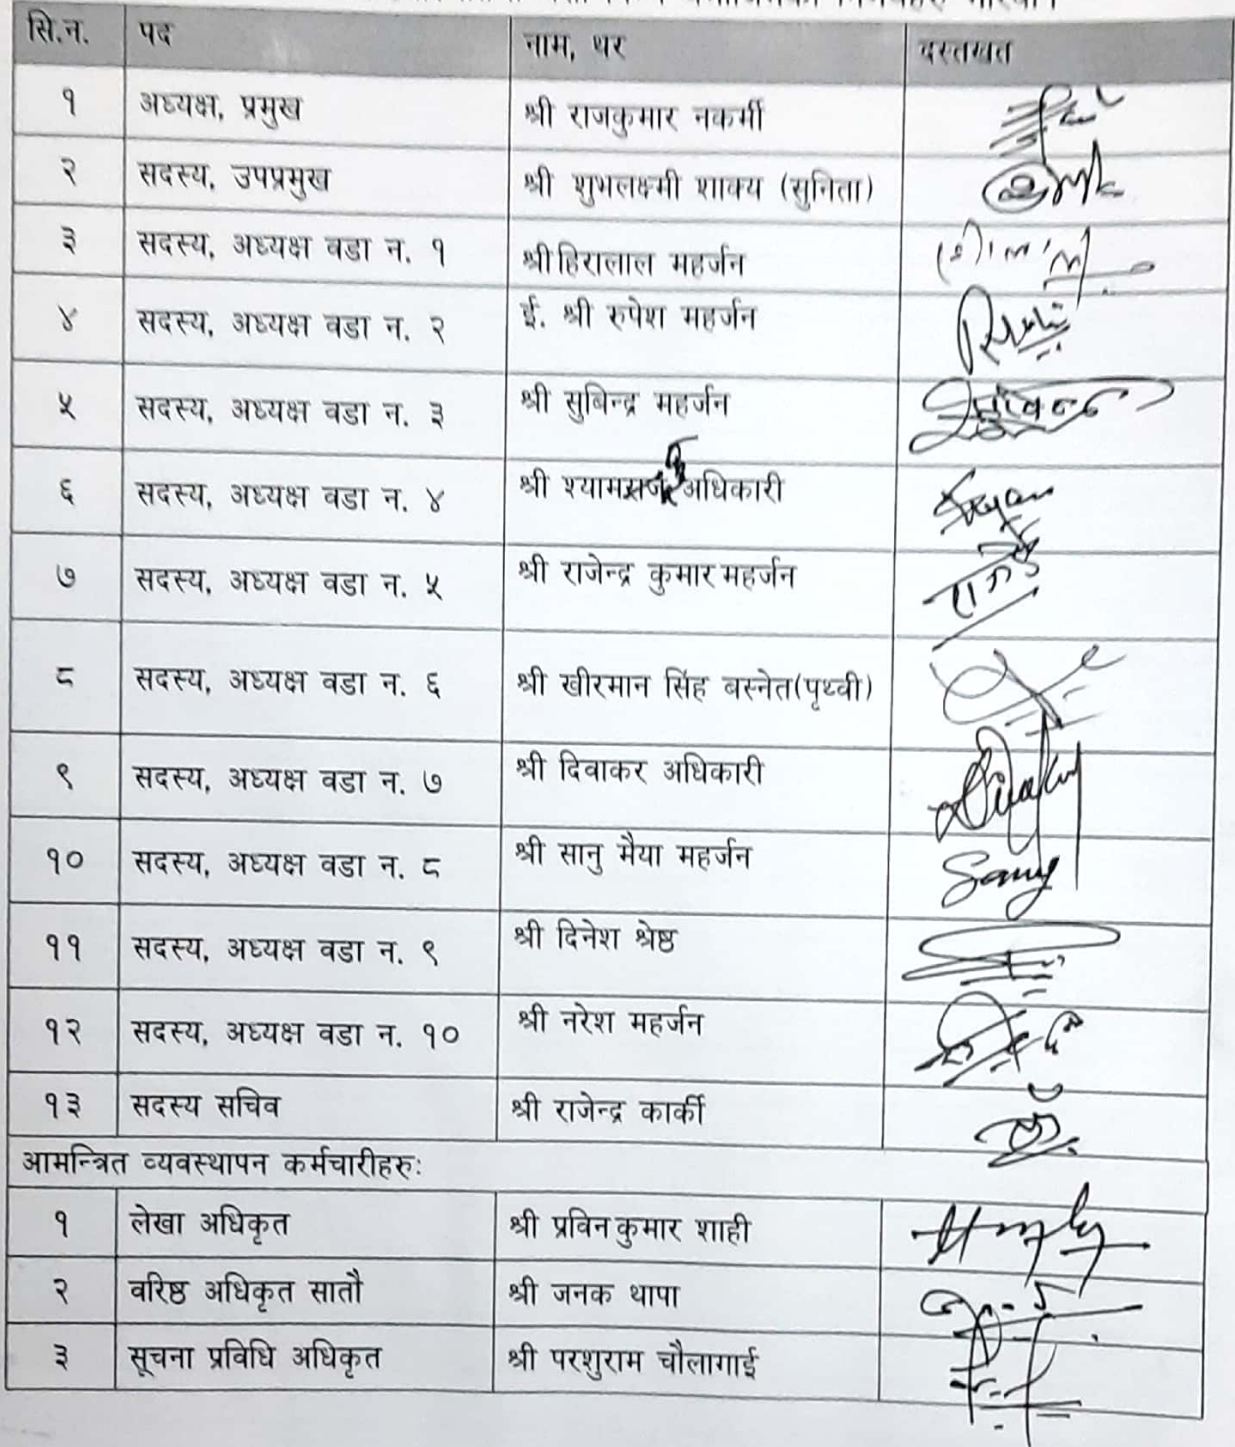 सि.न. पद नाम, थर दस्तखत
१ अध्यक्ष, प्रमुख श्री राजकुमार नकर्मी
२ सदस्य, उपप्रमुख श्री शुभलक्ष्मी शाक्य (सुनिता)
३ सदस्य, अध्यक्ष वडा न. १ श्री हिरालाल महर्जन
४ सदस्य, अध्यक्ष वडा न. २ ई. श्री रुपेश महर्जन
५ सदस्य, अध्यक्ष वडा न. ३ श्री सुबिन्द्र महर्जन
६ सदस्य, अध्यक्ष वडा न. ४ श्री श्याम अधिकारी
७ सदस्य, अध्यक्ष वडा न. ५ श्री राजेन्द्र कुमार महर्जन
८ सदस्य, अध्यक्ष वडा न. ६ श्री खीरमान सिंह बस्नेत(पृथ्वी)
९ सदस्य, अध्यक्ष वडा न. ७ श्री दिवाकर अधिकारी
१० सदस्य, अध्यक्ष वडा न. ८ श्री सानु मैया महर्जन
११ सदस्य, अध्यक्ष वडा न. ९ श्री दिनेश श्रेष्ठ
१२ सदस्य, अध्यक्ष वडा न. १० श्री नरेश महर्जन
१३ सदस्य सचिव श्री राजेन्द्र कार्की
आमन्त्रित व्यवस्थापन कर्मचारीहरु:
१ लेखा अधिकृत श्री प्रविन कुमार शाही
२ वरिष्ठ अधिकृत सातौ श्री जनक थापा
३ सूचना प्रविधि अधिकृत श्री परशुराम चौलागाई